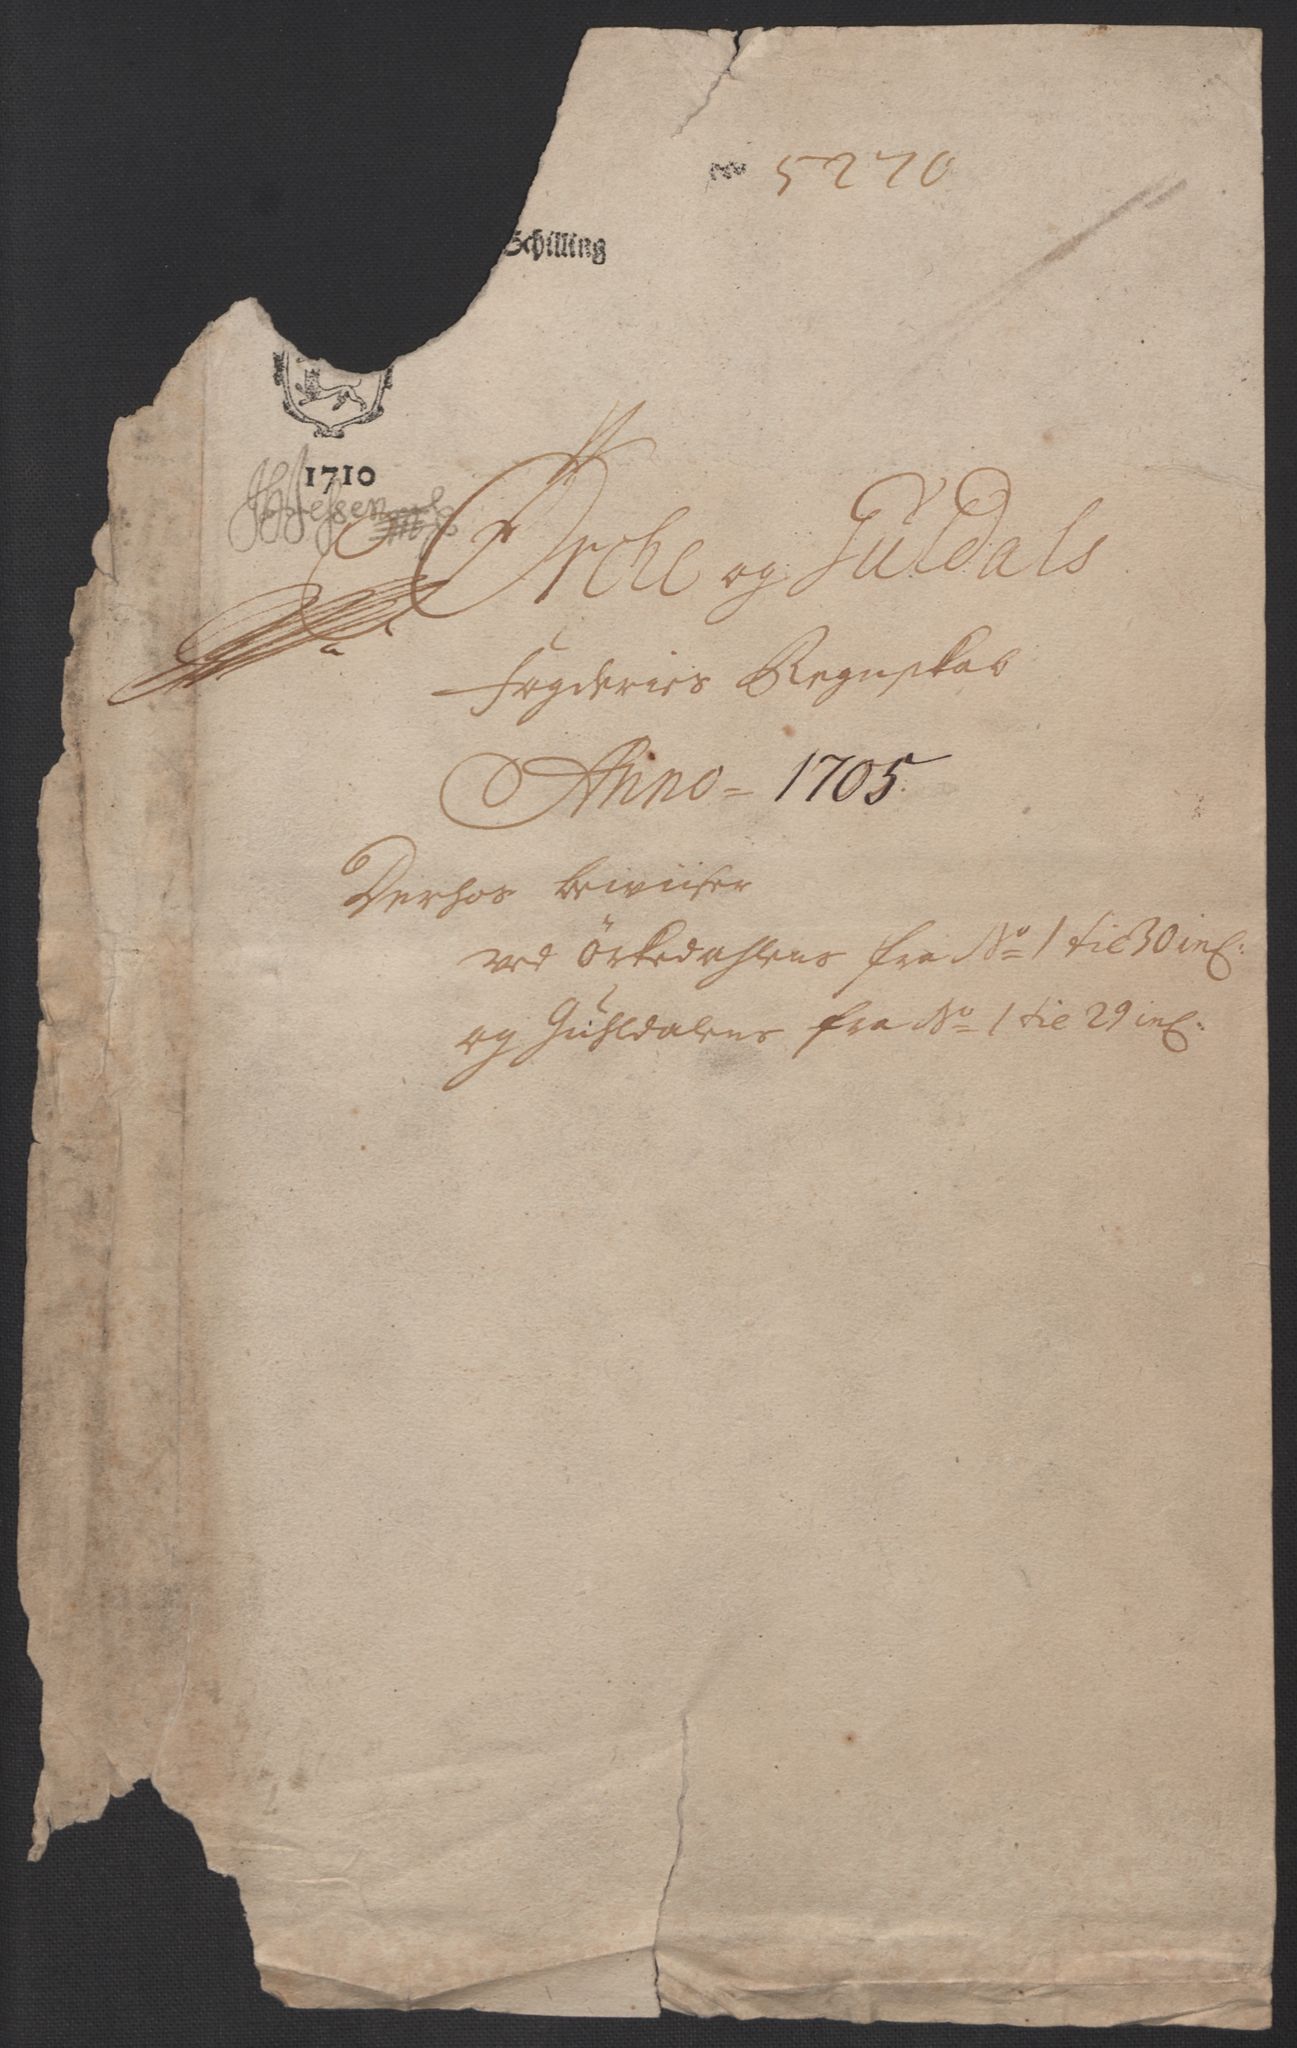 No 5270
Schilling
1710
Orche og Guldals
Fogderies Regnskab
Anno = 1705.
Derhos bewiiser
ved Örkedahlens fra No 1 til 30 incl:
og Guhldalens fra No 1 til 29 incl: